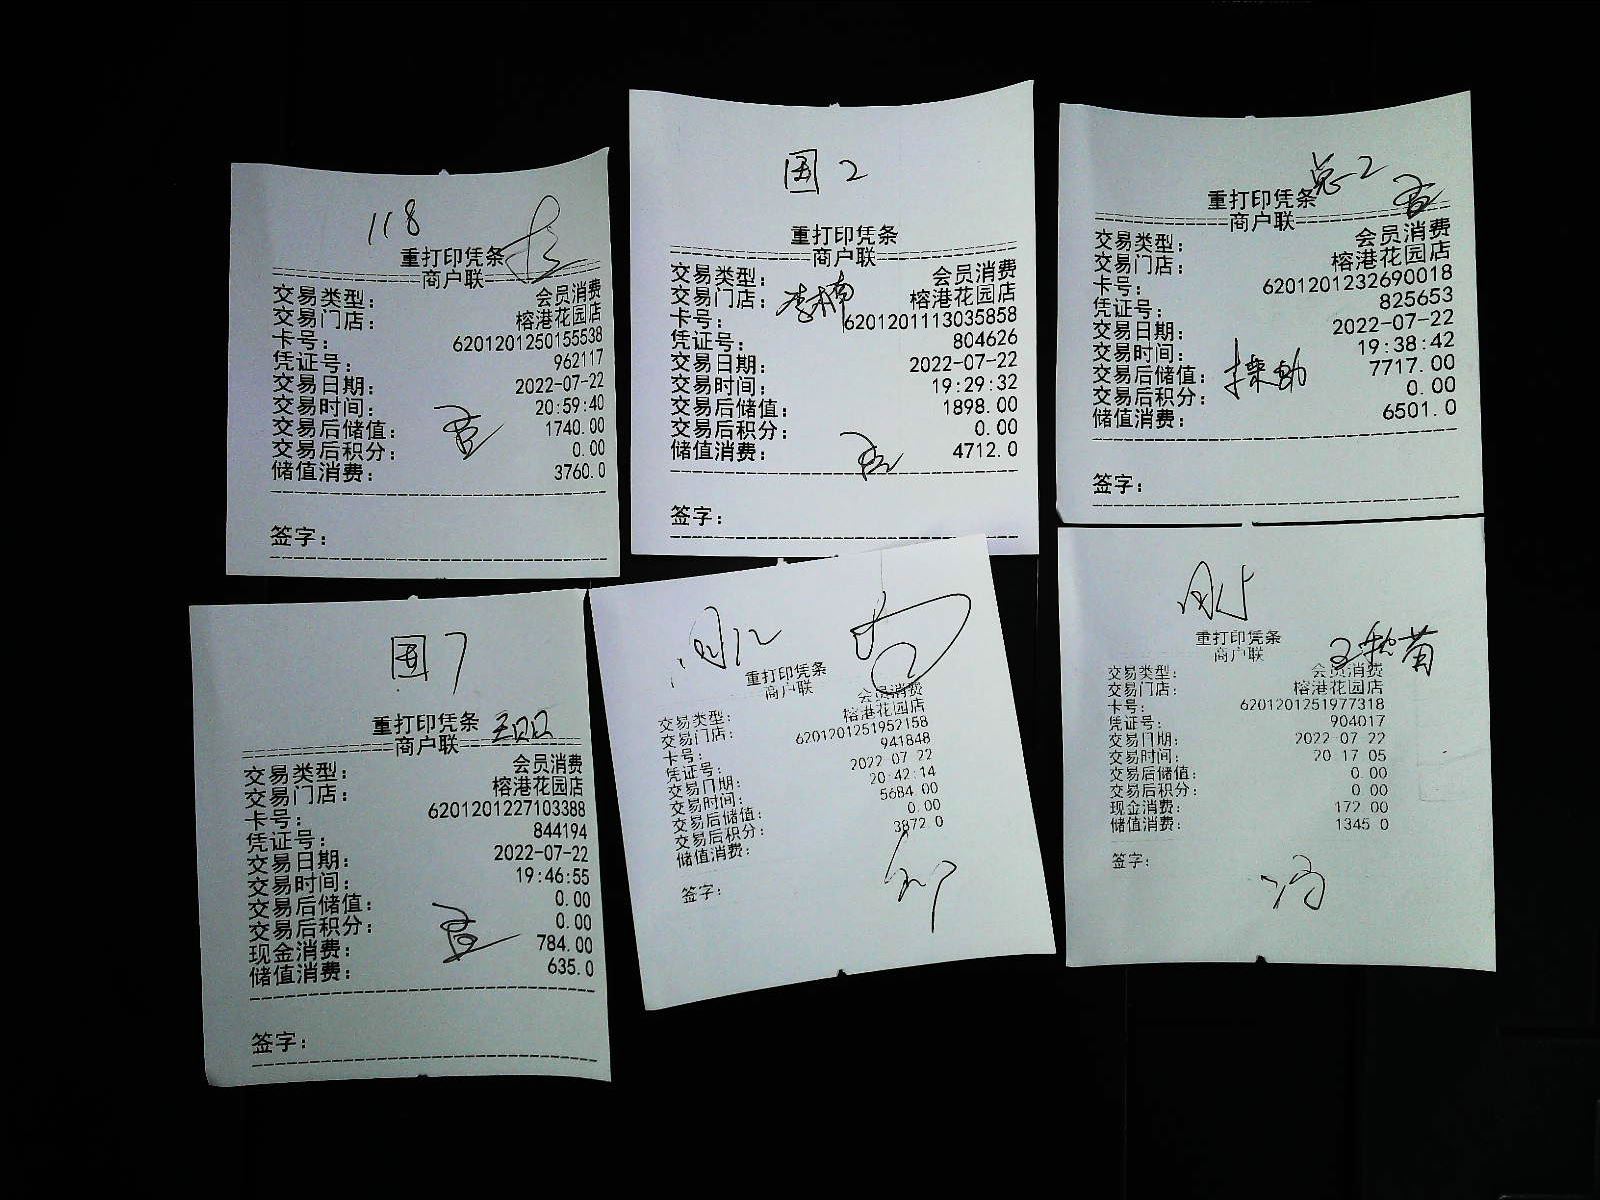 118
重打印凭条
商户联
交易类型： 会员消费
交易门店： 榕港花园店
卡号： 6201201250155538
凭证号： 962117
交易日期： 2022-07-22
交易时间： 20:59:40
交易后储值： 1740.00
交易后积分： 0.00
储值消费： 3760.0
签字：
国2
重打印凭条
商户联
交易类型： 会员消费
交易门店： 榕港花园店
李楠
卡号： 6201201113035858
凭证号： 804626
交易日期： 2022-07-22
交易时间： 19:29:32
交易后储值： 1898.00
交易后积分： 0.00
储值消费： 4712.0
签字：
总-2
重打印凭条
商户联
交易类型： 会员消费
交易门店： 榕港花园店
卡号： 6201201232690018
凭证号： 825653
交易日期： 2022-07-22
交易时间： 19:38:42
交易后储值： 7717.00
交易后积分： 0.00
储值消费： 6501.0
签字：
国7
重打印凭条
商户联
交易类型： 会员消费
交易门店： 榕港花园店
卡号： 6201201227103388
凭证号： 844194
交易日期： 2022-07-22
交易时间： 19:46:55
交易后储值： 0.00
交易后积分： 0.00
现金消费： 784.00
储值消费： 635.0
签字：
重打印凭条
商户联
交易类型： 会员消费
交易门店： 榕港花园店
卡号： 6201201251952158
凭证号： 941848
交易日期： 2022 07 22
交易时间： 20:42:14
交易后储值： 5684 00
交易后积分： 0.00
储值消费： 3872 0
签字：
重打印凭条
商户联
交易类型： 会员消费
交易门店： 榕港花园店
卡号： 6201201251977318
凭证号： 904017
交易日期： 2022 07 22
交易时间： 20 17 05
交易后储值： 0.00
交易后积分： 0 00
现金消费： 172 00
储值消费： 1345 0
签字：
冯